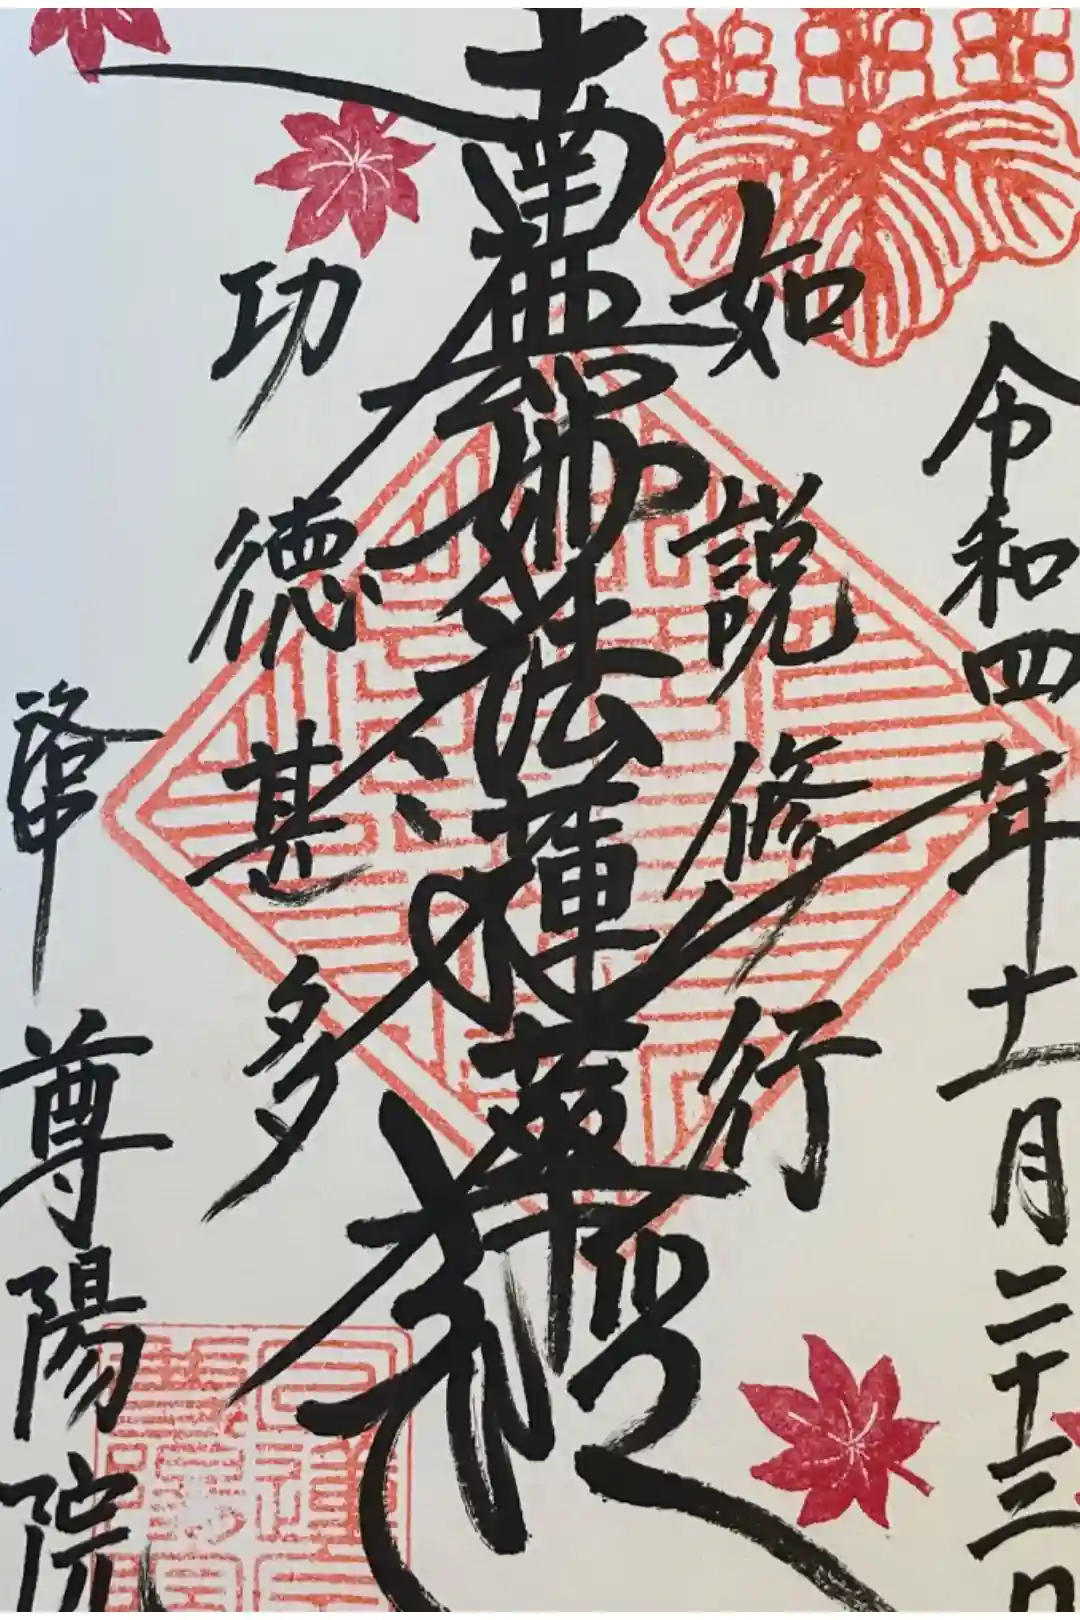 令和四年十一月二十三日
如説修行
南無妙法蓮華経
功徳甚多
洛中
尊陽院